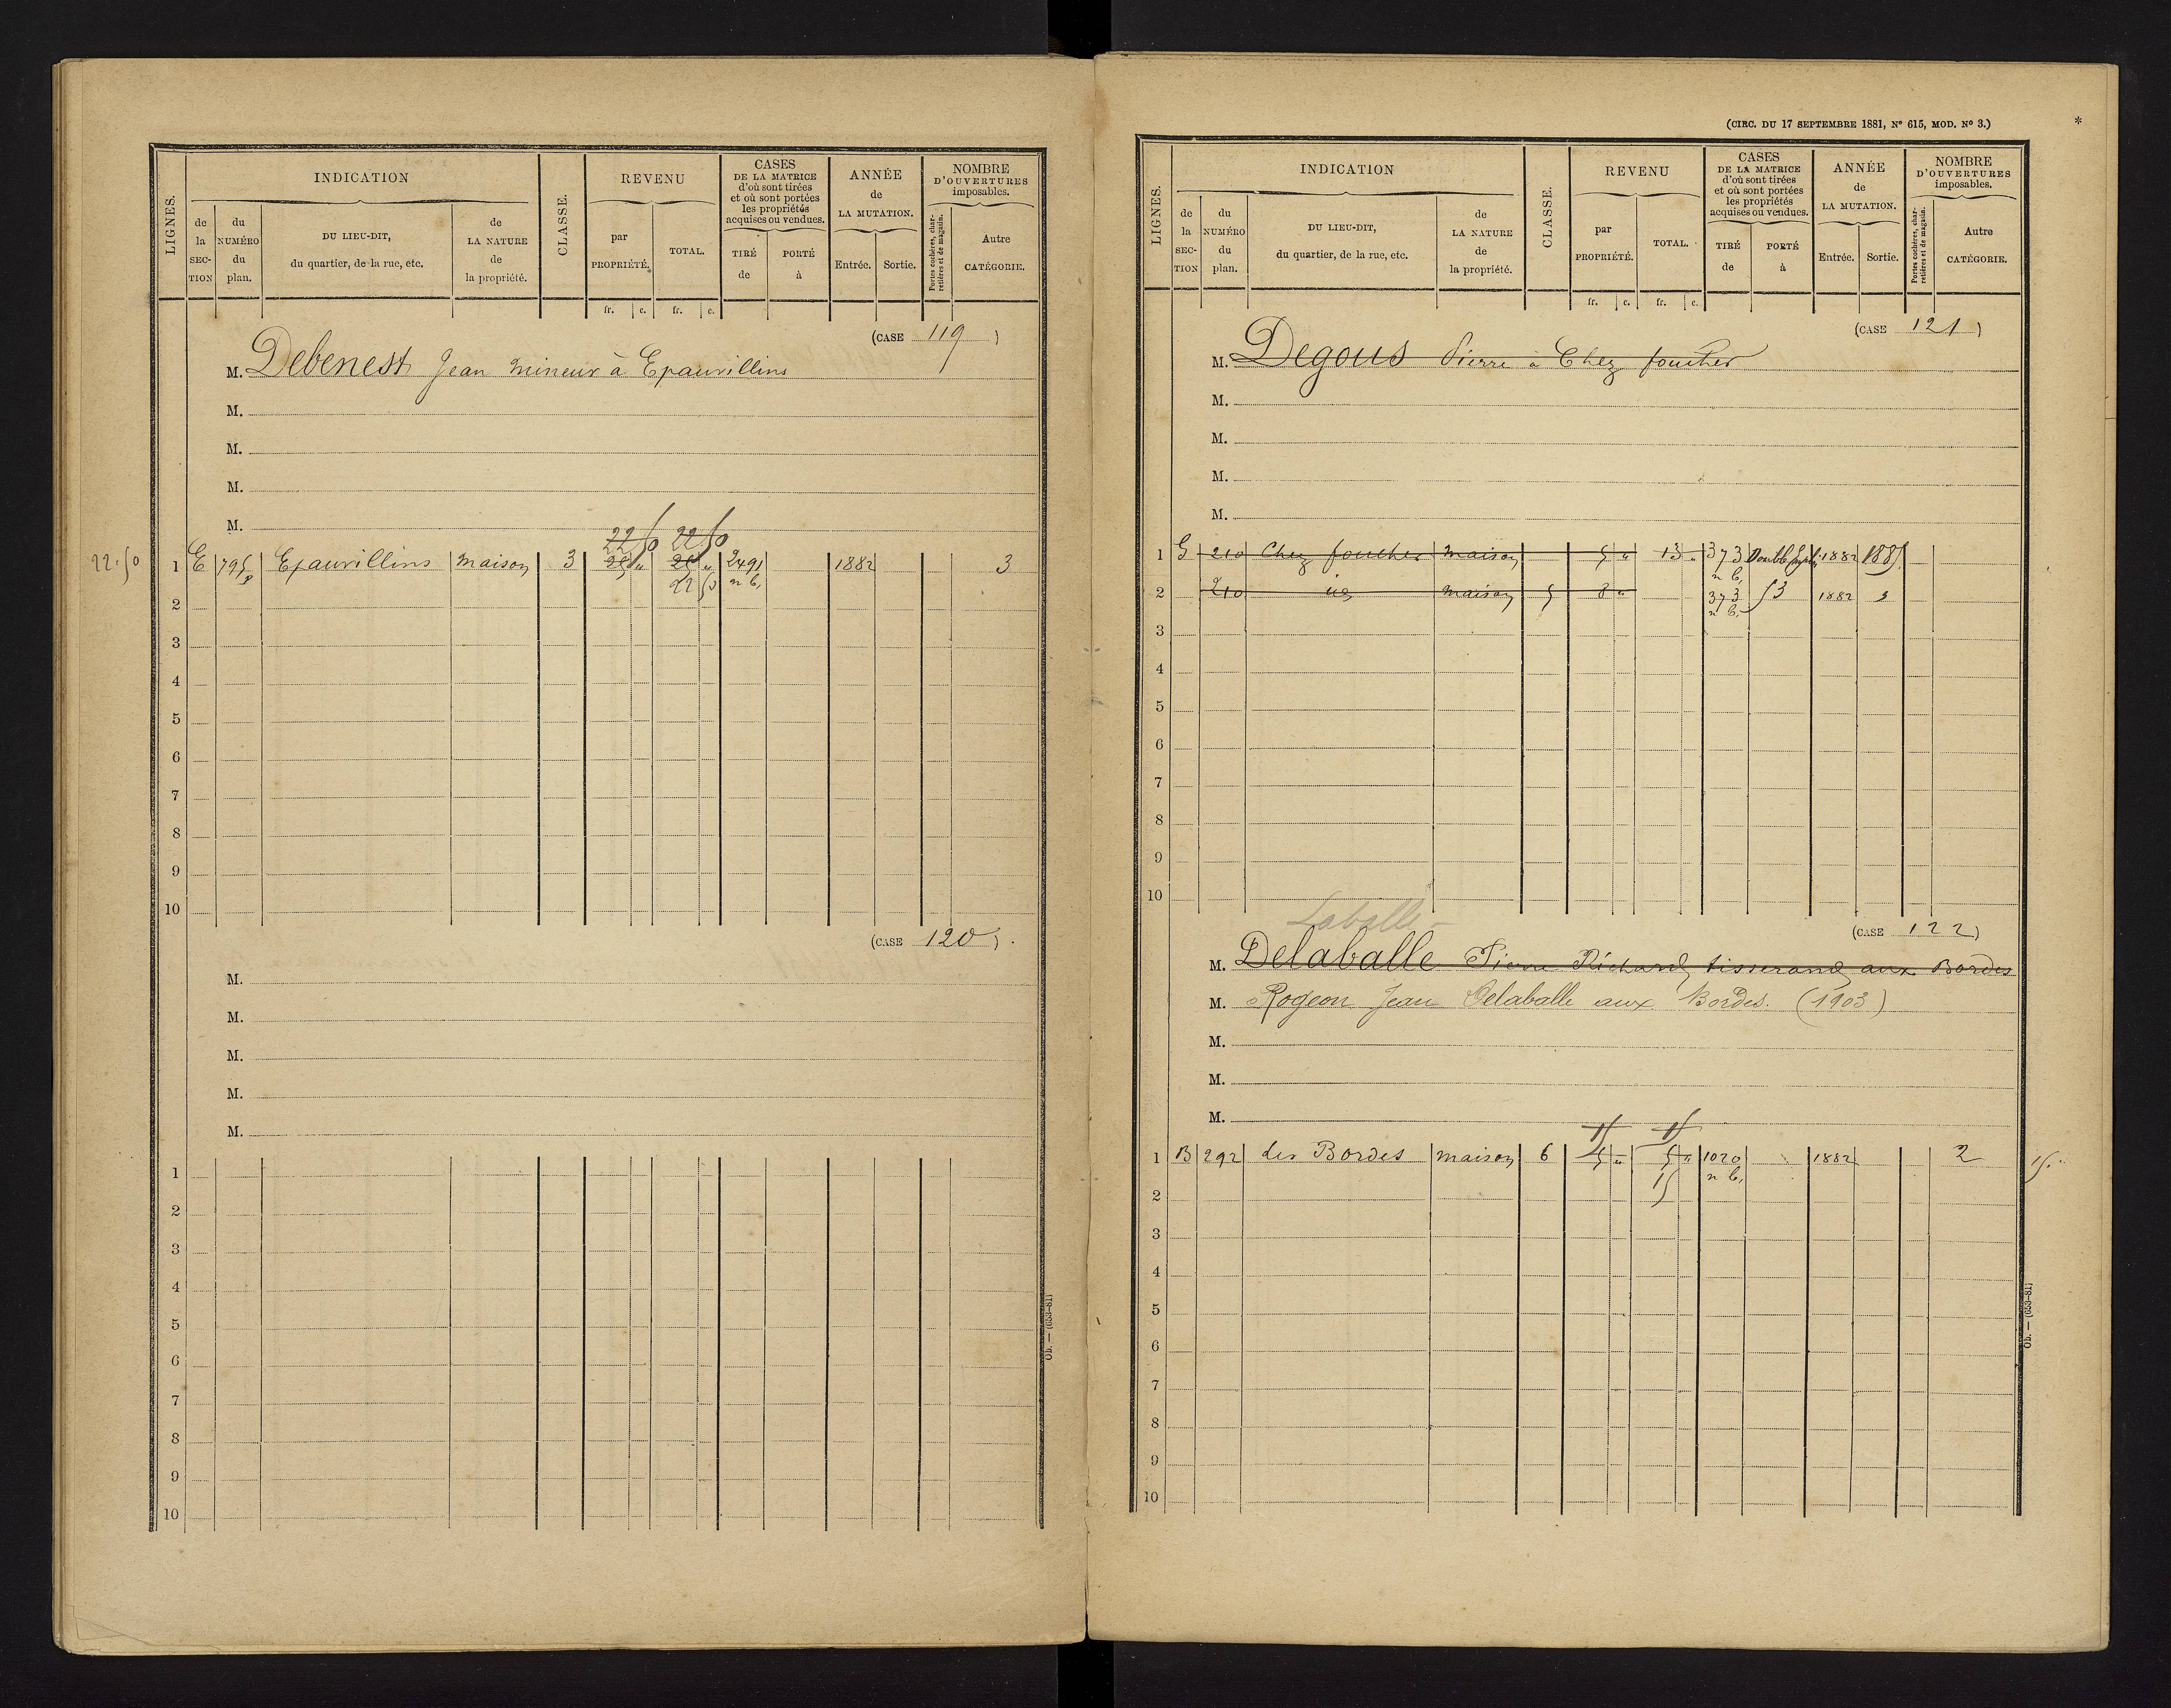 LIGNES.
INDICATION
de la SECTION
du NUMÉRO du plan.
DU LIEU-DIT, du quartier, de la rue, etc.
de LA NATURE de la propriété.
CLASSE.
REVENU
par PROPRIÉTÉ.
TOTAL.
CASES DE LA MATRICE d'où sont tirées et où sont portées les propriétés acquises ou vendues.
TIRÉ de
PORTÉ à
ANNÉE de LA MUTATION.
Entrée.
Sortie.
NOMBRE D'OUVERTURES imposables.
Portes cochères, charretières et de magasin.
Autre CATÉGORIE.
fr. c. fr. c.
(CASE 119)
M. Debenest Jean mineur à Epauvillins
M.
M.
M.
M.
22 50 22 50
22.50 1 E 795p Epauvillins maison 3 25 " 25 " 2491 1882 3
22 50 n b.
2
3
4
5
6
7
8
9
10
(CASE 120).
M.
M.
M.
M.
M.
1
2
3
4
5
6
7
8
9
10
Ob. — (653-81)
(CIRC. DU 17 SEPTEMBRE 1881, N° 615, MOD. N° 3.) *
LIGNES.
INDICATION
de la SECTION
du NUMÉRO du plan.
DU LIEU-DIT, du quartier, de la rue, etc.
de LA NATURE de la propriété.
CLASSE.
REVENU
par PROPRIÉTÉ.
TOTAL.
CASES DE LA MATRICE d'où sont tirées et où sont portées les propriétés acquises ou vendues.
TIRÉ de
PORTÉ à
ANNÉE de LA MUTATION.
Entrée.
Sortie.
NOMBRE D'OUVERTURES imposables.
Portes cochères, charretières et de magasin.
Autre CATÉGORIE.
fr. c. fr. c.
(CASE 121)
M. Degous Pierre à Chez foucher
M.
M.
M.
M.
1 G 210 Chez foucher maison 5 " 13 " 373 Double 1882 1885
n b.
2 210 id maison 5 8 " 373 53 1882
n b.
3
4
5
6
7
8
9
10
Laballe
(CASE 122)
M. Delaballe Pierre Richard, tisserand aux Bordes
M. Rogeon Jean Delaballe aux Bordes. (1903)
M.
M.
M.
15 15
1 B 292 les Bordes maison 6 5 " 5 " 1020 1882 2 15.
15 n b.
2
3
4
5
6
7
8
9
10
Ob. — (653-81)